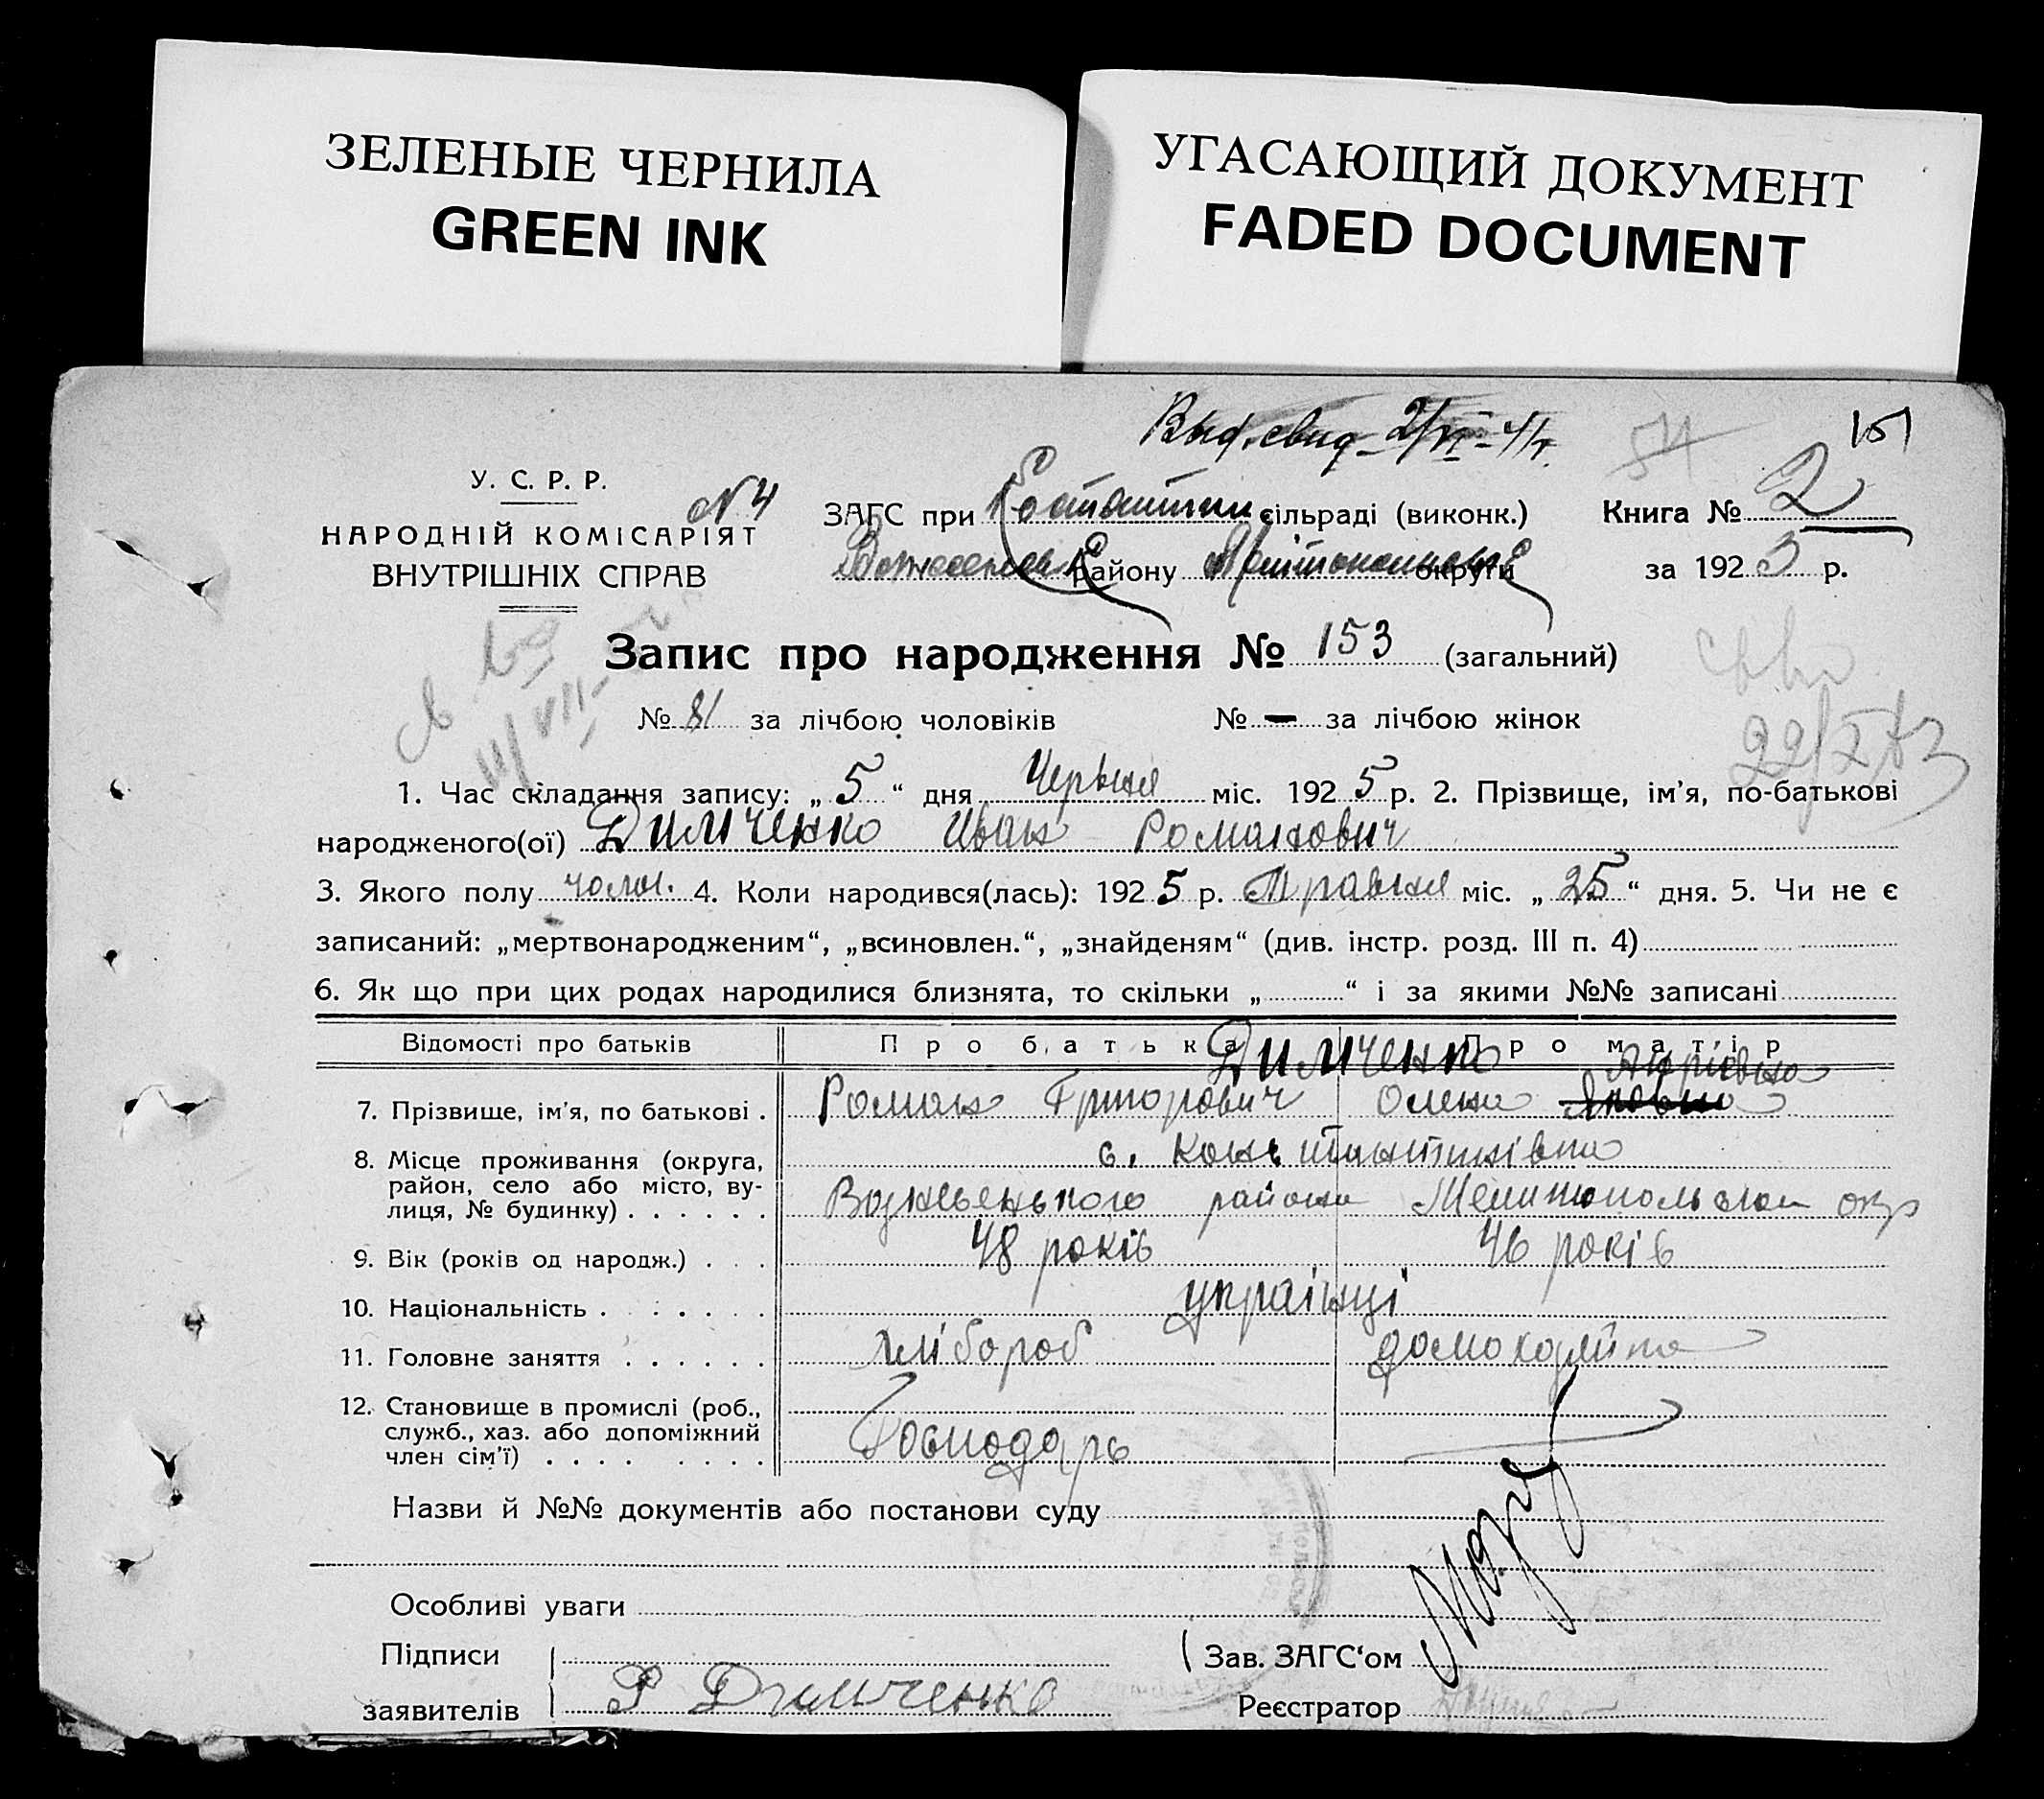 ЗЕЛЕНЫЕ ЧЕРНИЛА
GREEN INK
УГАСАЮЩИЙ ДОКУМЕНТ
FADED DOCUMENT
Выд. свид. 2/VI-41г.
151
У. С. Р. Р.
НАРОДНІЙ КОМІСАРІЯТ
ВНУТРІШНІХ СПРАВ
N 4
ЗАГС при сільраді (виконк.)
району округи
Книга № 2
за 1925 р.
Запис про народження № 153 (загальний)
№ 81 за лічбою чоловіків № — за лічбою жінок
1. Час складання запису: „ 5 “ дня Червня міс. 1925 р. 2. Прізвище, ім'я, по-батькові
народженого(ої) Димченко Иван Романович
3. Якого полу 4. Коли народився(лась): 1925 р. Травня міс. „ 25 “ дня. 5. Чи не є
записаний: „мертвонародженим“, „всиновлен.“, „знайденям“ (див. інстр. розд. III п. 4)
6. Як що при цих родах народилися близнята, то скільки „ “ і за якими №№ записані
Відомості про батьків Про батька Про матір
Димченко
7. Прізвище, ім'я, по батькові . Роман Григорович Олена
8. Місце проживання (округа, район, село або місто, вулиця, № будинку) . . . . . . с. Константинівка
району Мелитопольскои окр
9. Вік (років од народж.) . . . 48 років 46 років
10. Національність . . . . . . українці
11. Головне заняття . . . . . . хлібороб домохозяйка
12. Становище в промислі (роб., служб., хаз. або допоміжний член сім'ї) . . . . . . . . Господарь
Назви й №№ документів або постанови суду
Особливі уваги
Підписи
заявителів Р Димченко
Зав. ЗАГС'ом
Реєстратор